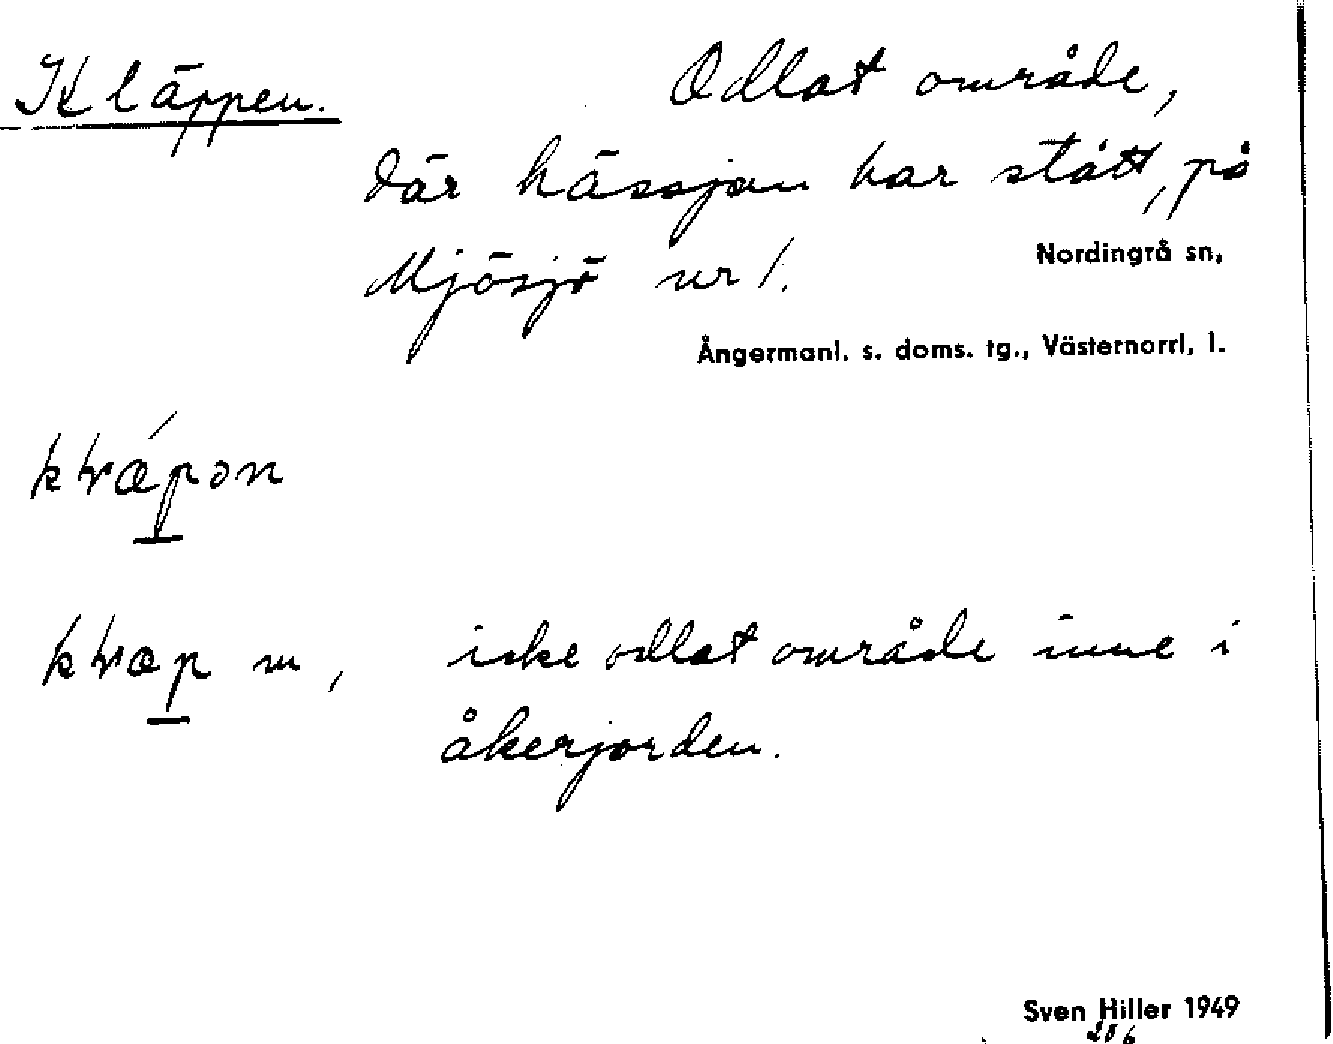 Kläppen. Odlat område,
där hässjan har stått, på
Mjösjö nr 1.
Nordingrå sn,
Ångermanl. s. doms. tg., Västernorrl, l.
m, icke odlat område inne i
åkerjorden.
Sven Hiller 1949